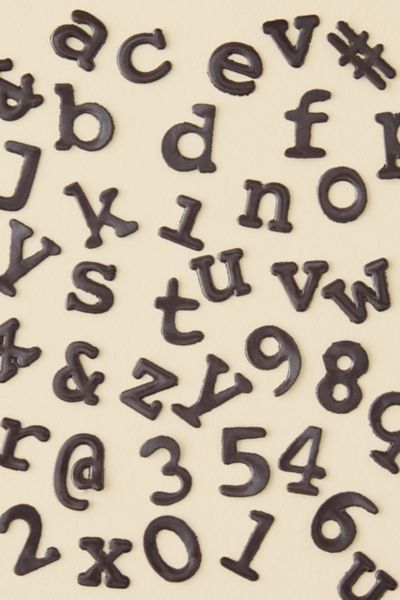 a c e v #
& b d f
J k 1 n o
y s t u v w
& z y 9 8
r @ 3 5 4
2 x 0 1 6 u